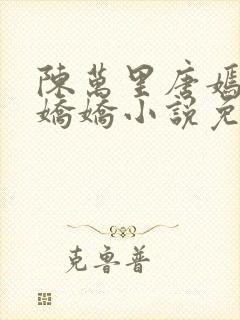 陳萬里唐嫣
嬌嬌小說免
克魯普